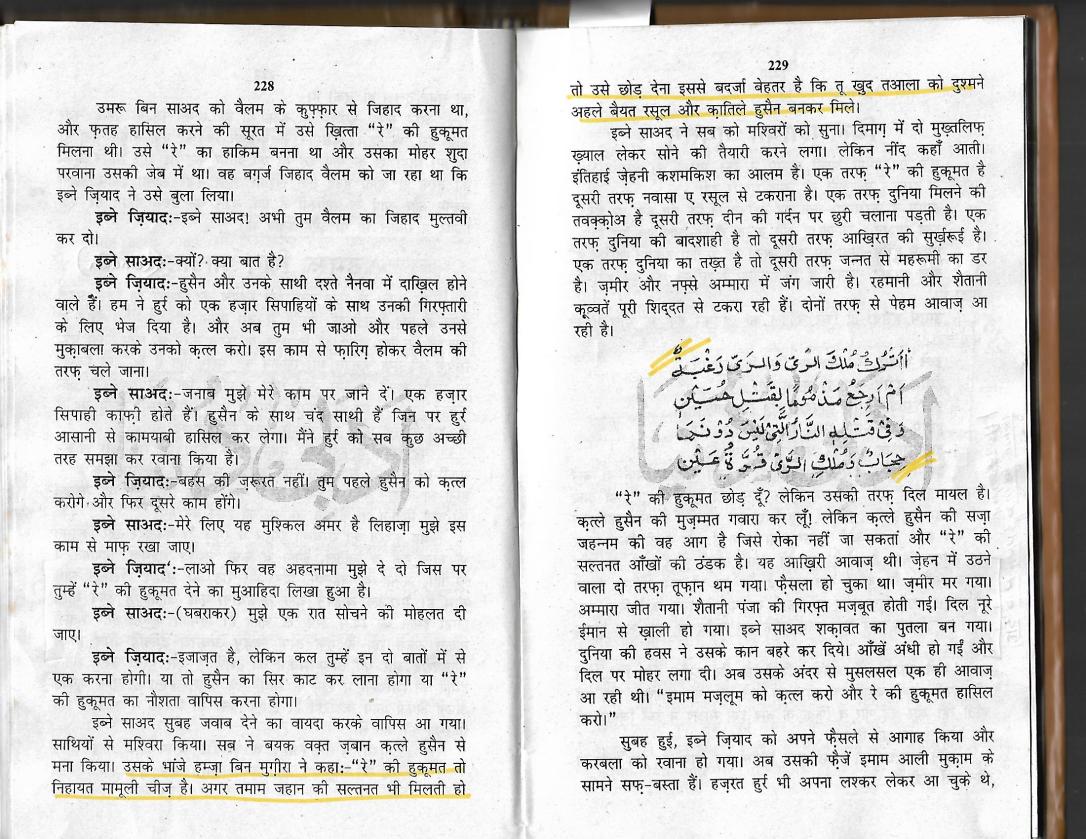 228
उमरू बिन साअद को वैलम के कुफ़्फ़ार से जिहाद करना था,
और फ़तह हासिल करने की सूरत में उसे खि़त्ता “रे” की हुकूमत
मिलना थी। उसे “रे” का हाकिम बनना था और उसका मोहर शुदा
परवाना उसकी जेब में था। वह बग़र्ज़ जिहाद वैलम को जा रहा था कि
इब्ने ज़ियाद ने उसे बुला लिया।
इब्ने ज़ियादः-इब्ने साअद! अभी तुम वैलम का जिहाद मुल्तवी
कर दो।
इब्ने साअदः-क्यों? क्या बात है?
इब्ने ज़ियादः-हुसैन और उनके साथी दश्ते नैनवा में दाखि़ल होने
वाले हैं। हम ने हुर्र को एक हज़ार सिपाहियों के साथ उनकी गिरफ़्तारी
के लिए भेज दिया है। और अब तुम भी जाओ और पहले उनसे
मुक़ाबला करके उनको क़त्ल करो। इस काम से फ़ारिग़ होकर वैलम की
तरफ़ चले जाना।
इब्ने साअदः-जनाब मुझे मेरे काम पर जाने दें। एक हज़ार
सिपाही काफ़ी होते हैं। हुसैन के साथ चंद साथी हैं जिन पर हुर्र
आसानी से कामयाबी हासिल कर लेगा। मैंने हुर्र को सब कुछ अच्छी
तरह समझा कर रवाना किया है।
इब्ने ज़ियादः-बहस की ज़रूरत नहीं। तुम पहले हुसैन को क़त्ल
करोगे और फिर दूसरे काम होंगे।
इब्ने साअदः-मेरे लिए यह मुश्किल अमर है लिहाज़ा मुझे इस
काम से माफ़ रखा जाए।
इब्ने ज़ियादः-लाओ फिर वह अहदनामा मुझे दे दो जिस पर
तुम्हें “रे” की हुकूमत देने का मुआहिदा लिखा हुआ है।
इब्ने साअदः-(घबराकर) मुझे एक रात सोचने की मोहलत दी
जाए।
इब्ने ज़ियादः-इजाज़त है, लेकिन कल तुम्हें इन दो बातों में से
एक करना होगी। या तो हुसैन का सिर काट कर लाना होगा या “रे”
की हुकूमत का नौशता वापिस करना होगा।
इब्ने साअद सुबह जवाब देने का वायदा करके वापिस आ गया।
साथियों से मश्विरा किया। सब ने बयक वक़्त ज़बान क़त्ले हुसैन से
मना किया। उसके भांजे हम्ज़ा बिन मुग़ीरा ने कहाः-“रे” की हुकूमत तो
निहायत मामूली चीज़ है। अगर तमाम जहान की सल्तनत भी मिलती हो
229
तो उसे छोड़ देना इससे बदर्जा बेहतर है कि तू खुद तआला को दुश्मने
अहले बैयत रसूल और क़ातिले हुसैन बनकर मिले।
इब्ने साअद ने सब को मश्विरों को सुना। दिमाग़ में दो मुख़्तलिफ़
ख़्याल लेकर सोने की तैयारी करने लगा। लेकिन नींद कहाँ आती।
इंतिहाई ज़ेहनी कशमकिश का आलम है। एक तरफ़ “रे” की हुकूमत है
दूसरी तरफ़ नवासा ए रसूल से टकराना है। एक तरफ़ दुनिया मिलने की
तवक़्क़ोअ है दूसरी तरफ़ दीन की गर्दन पर छुरी चलाना पड़ती है। एक
तरफ़ दुनिया की बादशाही है तो दूसरी तरफ़ आखि़रत की सुर्ख़रूई है।
एक तरफ़ दुनिया का तख़्त है तो दूसरी तरफ़ जन्नत से महरूमी का डर
है। ज़मीर और नफ़्से अम्मारा में जंग जारी है। रहमानी और शैतानी
कूव्वतें पूरी शिद्दत से टकरा रही हैं। दोनों तरफ़ से पेहम आवाज़ आ
रही है।
أَاَتْرُكُ مُلْكَ الرَّىِّ وَالرَّىِّ رَغْبَةٌ
اَمْ اَرْجِعُ مَذْمُومًا بِقَتْلِ حُسَيْنٍ
وَفِىْ قَتْلِهِ النَّارُ الَّتِىْ لَيْسَ دُوْنَهَا
حِجَابٌ وَمُلْكُ الرَّىِّ قُرَّةُ عَيْنٍ
“रे” की हुकूमत छोड़ दूँ? लेकिन उसकी तरफ़ दिल मायल है।
क़त्ले हुसैन की मुज़म्मत गवारा कर लूँ! लेकिन क़त्ले हुसैन की सज़ा
जहन्नम की वह आग है जिसे रोका नहीं जा सकतां और “रे” की
सल्तनत आँखों की ठंडक है। यह आखि़री आवाज़ थी। ज़ेहन में उठने
वाला दो तरफ़ा तूफ़ान थम गया। फ़ैसला हो चुका था। ज़मीर मर गया।
अम्मारा जीत गया। शैतानी पंजा की गिरफ़्त मज़बूत होती गई। दिल नूरे
ईमान से ख़ाली हो गया। इब्ने साअद शक़ावत का पुतला बन गया।
दुनिया की हवस ने उसके कान बहरे कर दिये। आँखें अंधी हो गईं और
दिल पर मोहर लगा दी। अब उसके अंदर से मुसलसल एक ही आवाज़
आ रही थी। “इमाम मज़लूम को क़त्ल करो और रे की हुकूमत हासिल
करो।”
सुबह हुई, इब्ने ज़ियाद को अपने फ़ैसले से आगाह किया और
करबला को रवाना हो गया। अब उसकी फ़ैजें इमाम आली मुक़ाम के
सामने सफ़-बस्ता हैं। हज़रत हुर्र भी अपना लश्कर लेकर आ चुके थे,